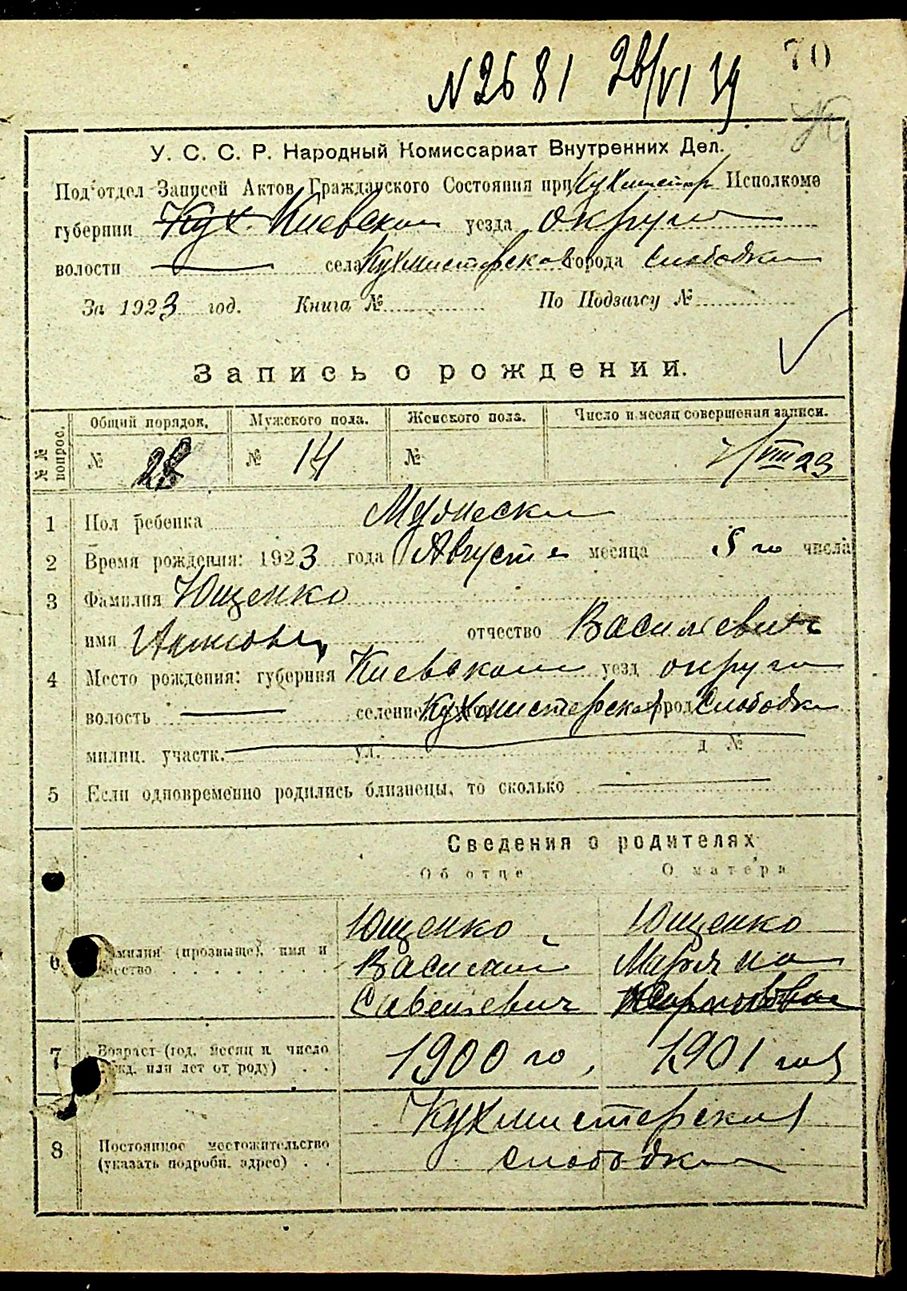 70
№2681 26/VI 39
У. С. С. Р. Народный Комиссариат Внутренних Дел.
Под'отдел Записей Актов Гражданского Состояния при Кухмистер Исполкоме
губернии Кух. Киевской уезда округа
волости — села Кухмистерской города Слободка
За 1923 год. Книга № По Подзагсу №
Запись о рождении.
№№ вопрос.
Общий порядок. Мужского пола. Женского пола. Число и месяц совершения записи.
№ 28 № 14 № /VIII 23
1 Пол ребенка Мужеска
2 Время рождения: 1923 года Августа месяца 5 го числа
3 Фамилия Ющенко
имя отчество Васильевич
4 Место рождения: губерния Киевской уезд округа
волость — селение Кухмистерская город Слободка
милиц. участк. ул. д №
5 Если одновременно родились близнецы, то сколько —
Сведения о родителях
Об отце О матери
6 Фамилия (прозвище), имя и отчество
Ющенко Ющенко
Василий Марьяна
Савельевич
7 Возраст (год, месяц и число рожд. или лет от роду)
1900 го, 1901 год
8 Постоянное местожительство (указать подробн. адрес)
Кухмистерская
слободка